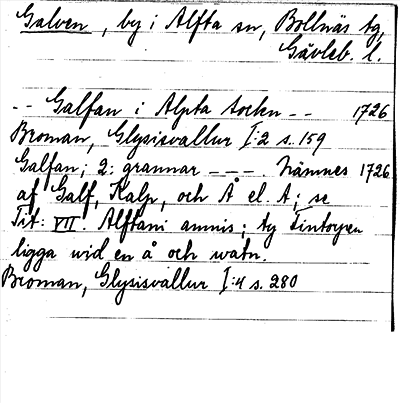 Galven, by i Alfta sn, Bollnäs tg,
Gävleb. l.
-- Galfan i Alpta sockn -- 1726
Broman, Glysisvallur I:2 s. 159
Galfan; 2: grannar ---. Nämnes 1726
af Galf, Kalp, och Å el. A; se
Tit: VII. Alftani amnis; ty Tintorpen
ligga wid en å och watn.
Broman, Glysisvallur I:4 s. 280